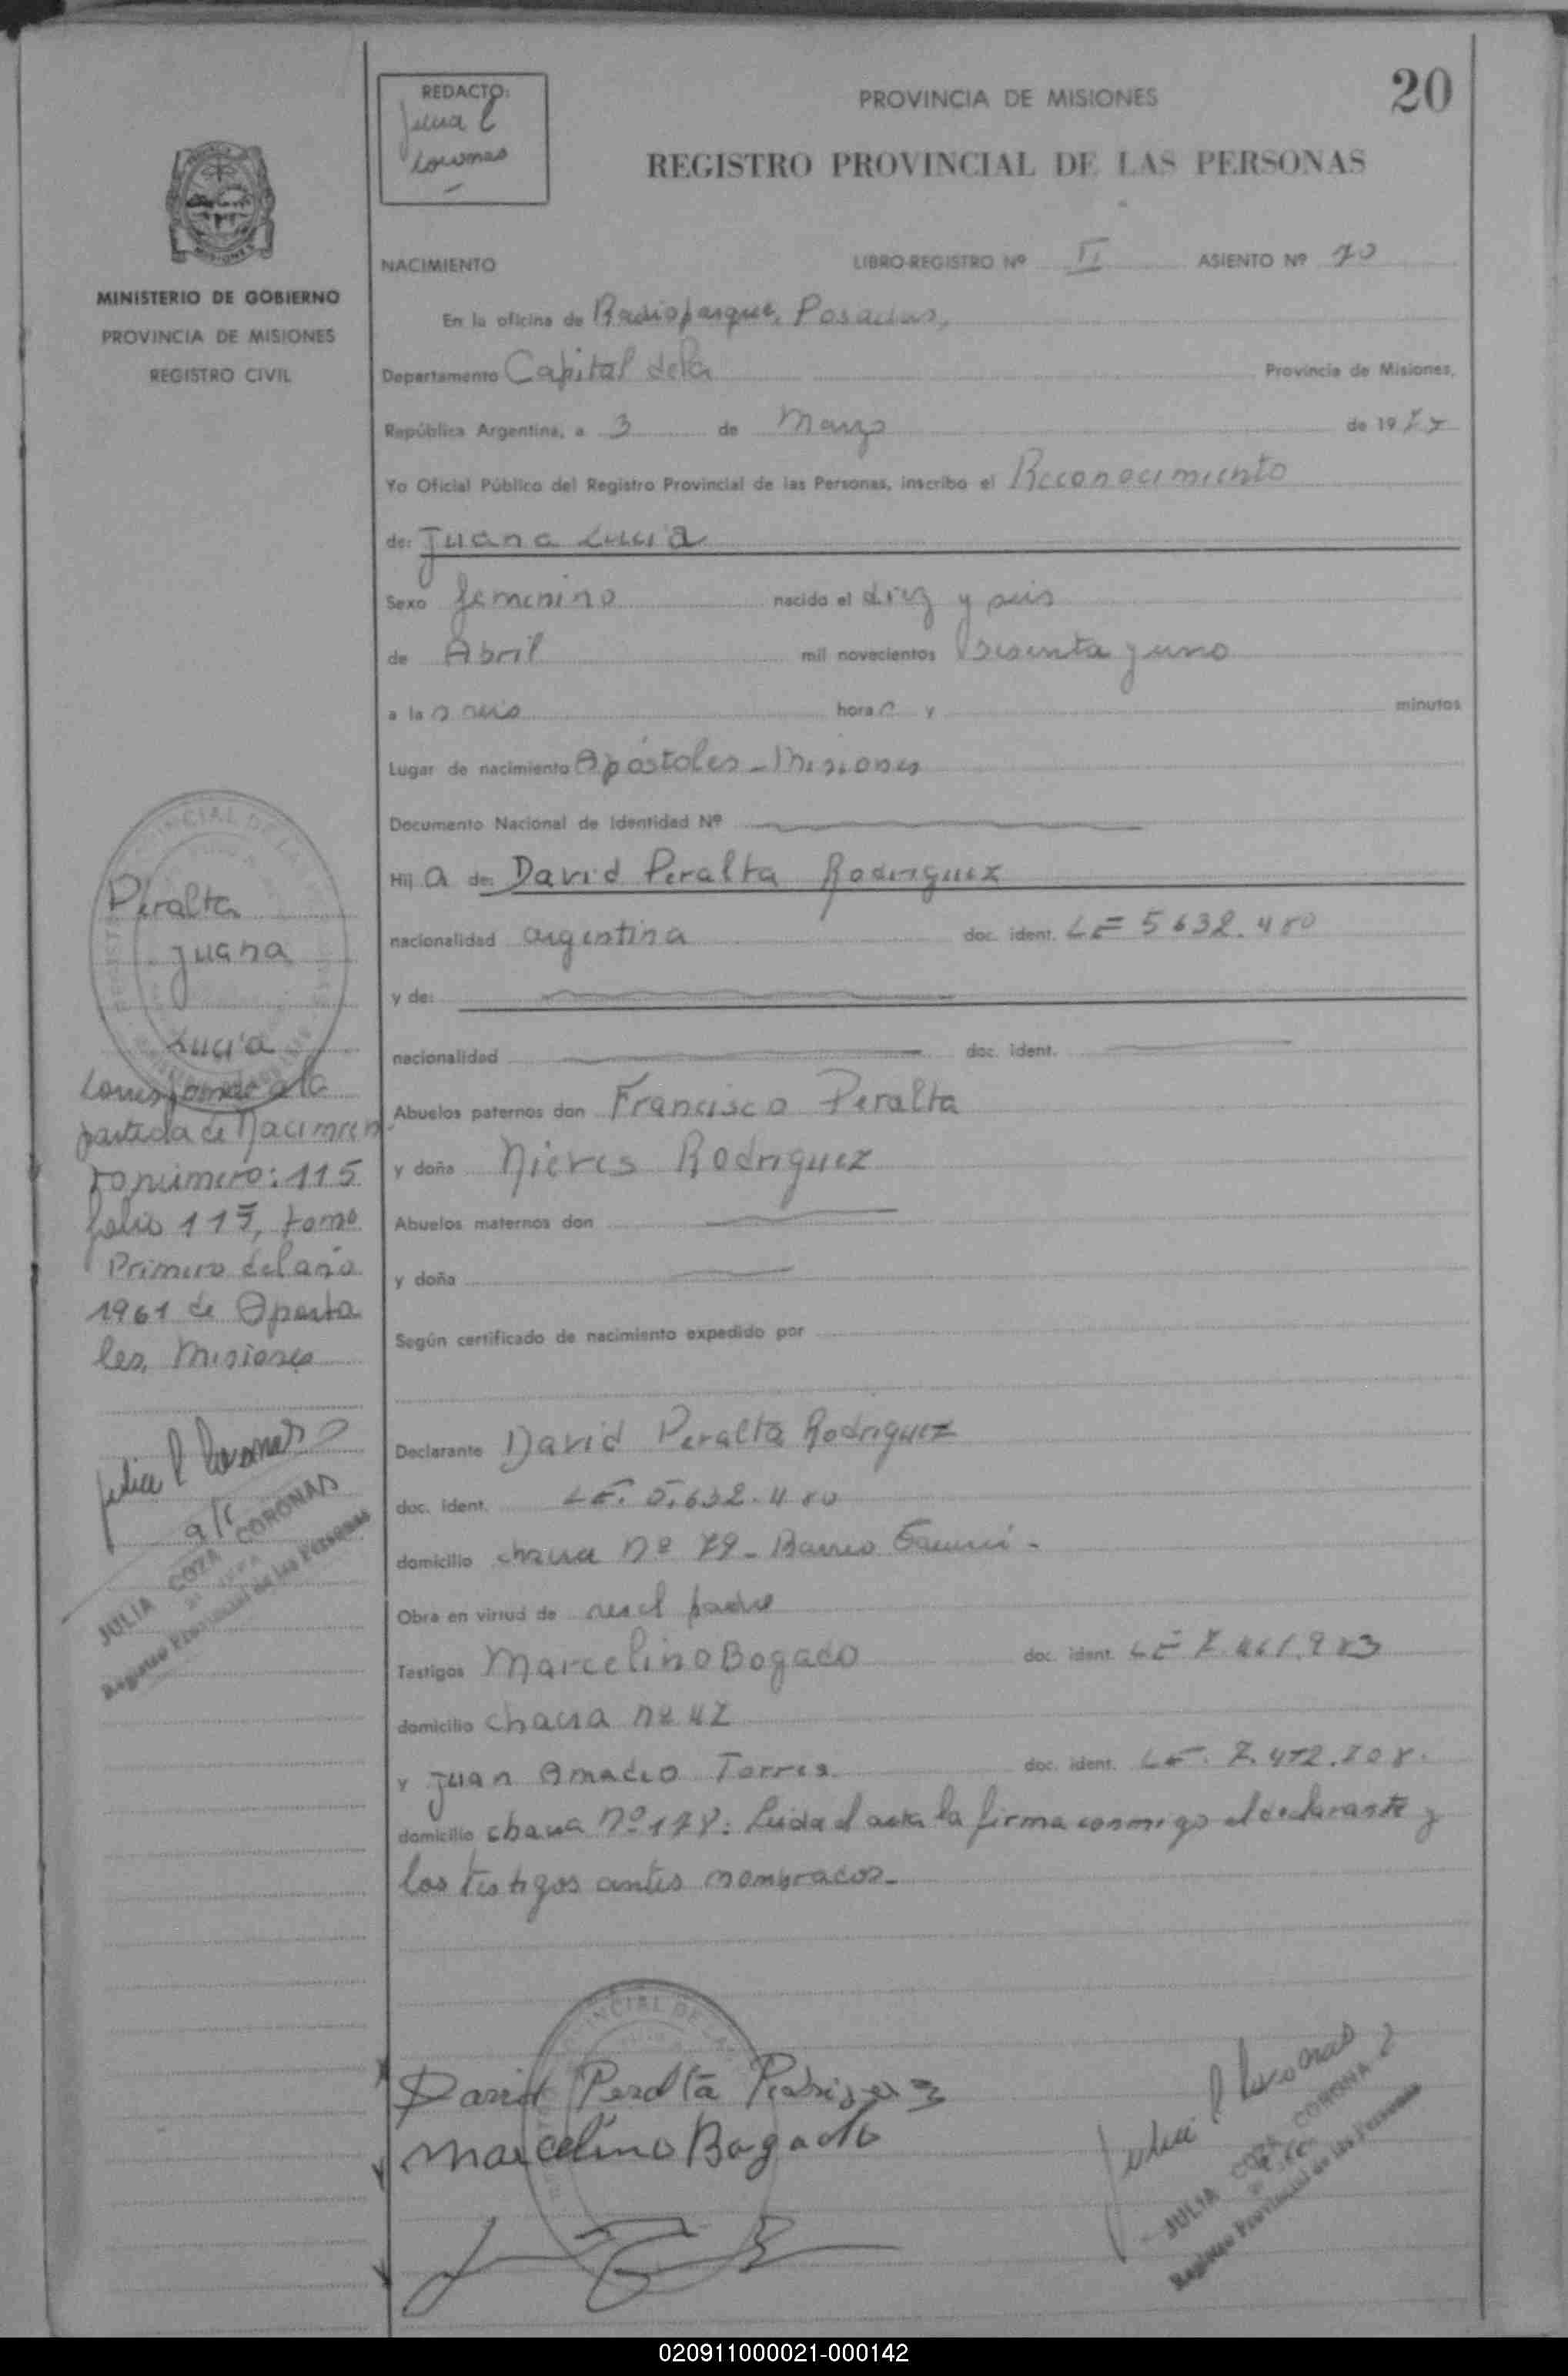 20
REDACTO:
Julia C
Coronas
PROVINCIA DE MISIONES
REGISTRO PROVINCIAL DE LAS PERSONAS
MISIONES
MINISTERIO DE GOBIERNO
PROVINCIA DE MISIONES
REGISTRO CIVIL
NACIMIENTO LIBRO-REGISTRO Nº II ASIENTO Nº
En la oficina de Radioparque, Posadas,
Departamento Capital de la Provincia de Misiones,
República Argentina, a 3 de Marzo de 1977
Yo Oficial Público del Registro Provincial de las Personas, inscribo el Reconocimiento
de: Juana Lucia
Sexo femenino nacido el diez y seis
de Abril mil novecientos sesenta y uno
a la s seis hora s y minutos
Lugar de nacimiento Apóstoles - Misiones
Documento Nacional de Identidad Nº
Hij a de: David Peralta Rodriguez
nacionalidad argentina doc. ident. LE 5632.480
y de:
nacionalidad doc. ident.
Abuelos paternos don Francisco Peralta
y doña Nieves Rodriguez
Abuelos maternos don
y doña
Según certificado de nacimiento expedido por
Declarante David Peralta Rodriguez
doc. ident. LE. 5.632.480
domicilio chacra Nº 79 - Barrio
Obra en virtud de ser el padre
Testigos Marcelino Bogado doc. ident. LE
domicilio chacra nº 47
y Juan Amadeo Torres doc. ident. LE.
domicilio chacra Nº 178: Leida el acta la firma conmigo el declarante y
los testigos antes nombrados.
Peralta
Juana
Lucia
Corresponde a la
partida de Nacimien
to número: 115
folio 115, tomo
Primero del año
1961 de Aposto
les, Misiones
Julia C Coronas
JULIA COZA CORONAS
Registro Provincial de las Personas
David Peralta Rodriguez
Marcelino Bogado
Julia C Coronas
JULIA COZA CORONAS
Registro Provincial de las Personas
020911000021-000142